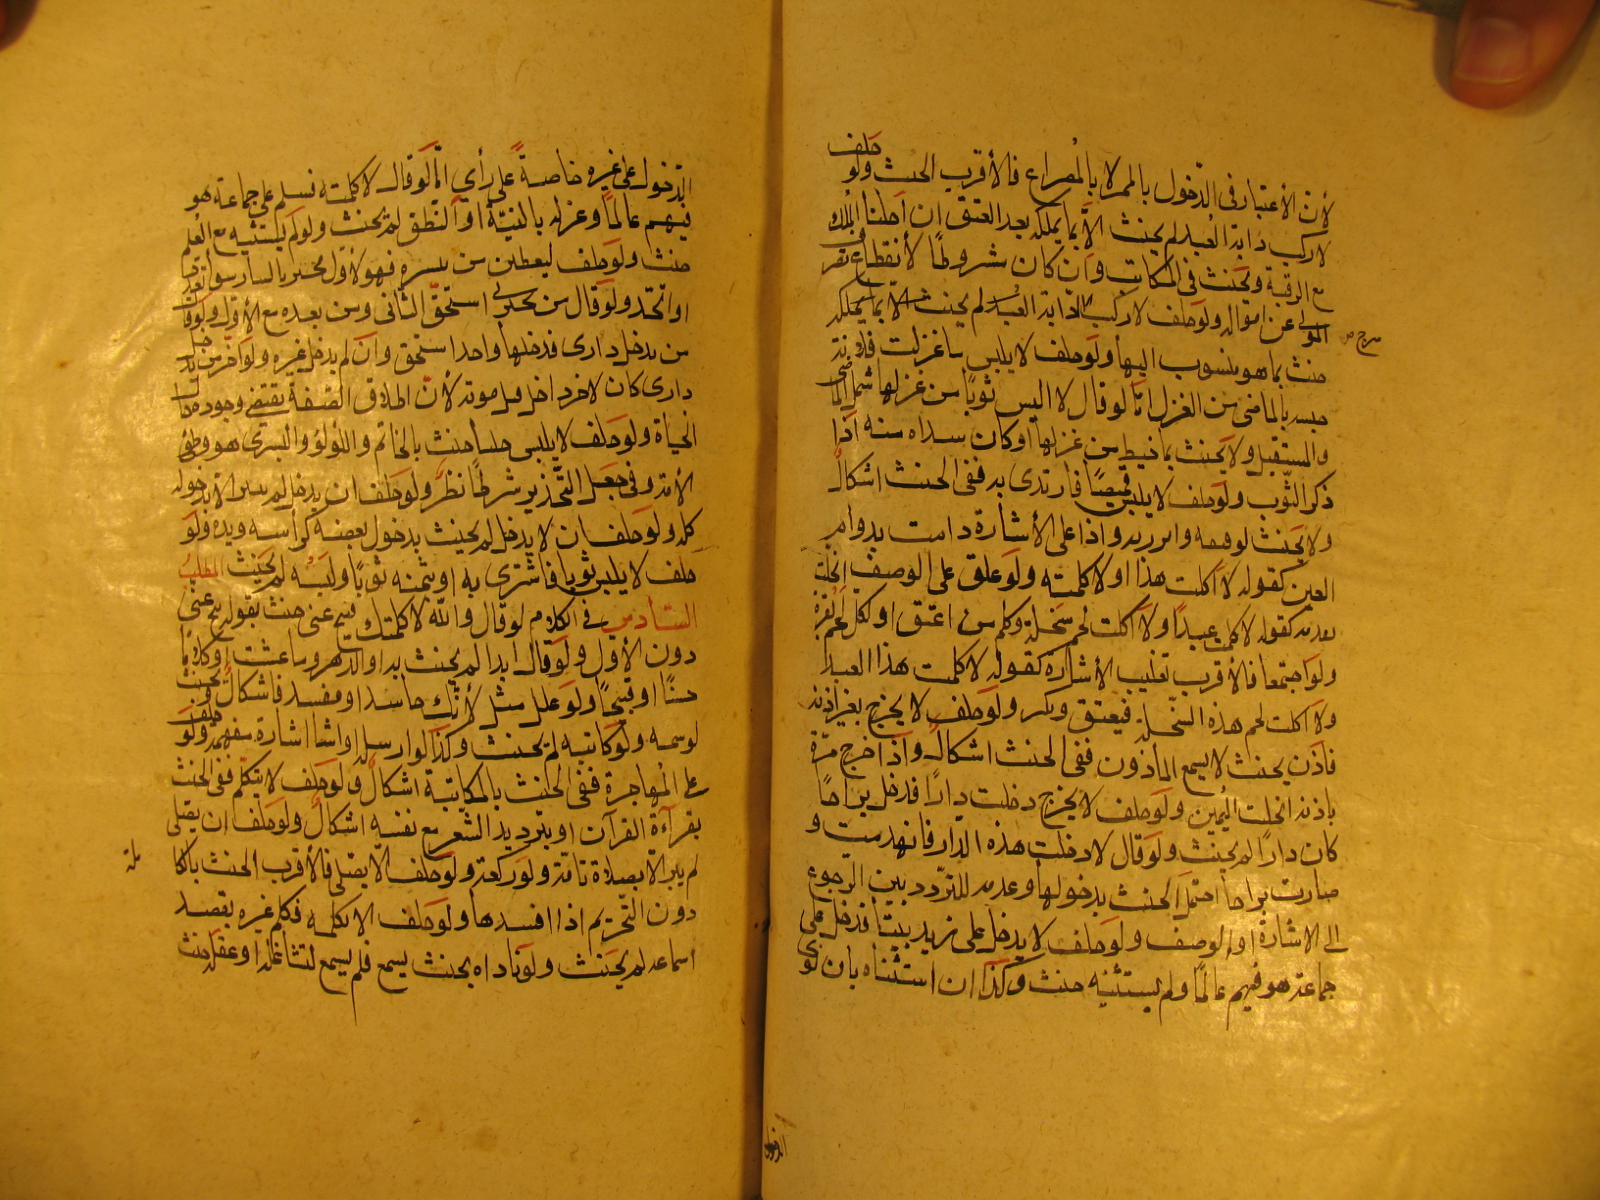 لأن الأعتبار فى الدّخول بالممر لا بالمصراع فالأقرب الحنث ولو حلف
لا ركب دابة العبد لم يحنث الّا بما يملكه بعد العتق ان أحلنا الملك
مع الرقية ويحنث فى المكاتب وان كان مشروطًا لأنقطاع تصرف
المولى عن امواله ولو حلف لا ركبت دابة العبد لم يحنث الّا بما يملكه
سرج
حنث بما هو منسوب اليها ولو حلف لا يلبس ما غزلت
بالماضى من الغزل امّا لو قال لا البس ثوبًا من غزلها شمل الماضى
والمستقبل ولا يحنث بما خيط من غزلها او كان سداه منه اذا
ذكر الثوب ولو حلف لا يلبس قميصًا فارتدى به ففى الحنث اشكال
ولا يحنث لو واذا على الأشارة دامت بدوام
العين كقوله لا اكلت هذا او لا كلمته ولو علق على الوصف انحلت
بعدمه كقوله لا كلمت عبدًا ولا اكلت لحم سخلة وكلم من اعتق او اكل لحم بقرة
ولو اجتمعا فالأقرب تغليب الأشارة كقوله لا كلمت هذا العبد
ولا اكلت لحم هذه السّخلة فيعتق ويكبر ولو حلف لا يخرج بغير اذنه
فاذن بحيث لا يسمع المأذون ففى الحنث اشكال واذا خرج مرّة
باذنه انحلت اليمين ولو حلف لا يخرج دخلت دارًا فدخل براحًا
كان دارًا لم يحنث ولو قال لا دخلت هذه الدار فانهدمت و
صارت براحا احتمل الحنث بدخولها وعدمه للتردد بين الرجوع
الى الاشارة او الوصف ولو حلف لا يدخل على زيد بيتا فدخل على
جماعة هو فيهم عالمًا ولم يستثنه حنث وكذا ان استثناه بان نوى
الدخول
الدّخول على غيره خاصةً على رأي امّا لو قال لا كلمته فسلم على جماعة هو
فيهم عالمًا وعزله بالنيّة او النطق لم يحنث ولو لم يستثنيه مع العلم
حنث ولو حلف ليعطين من يبشره فهو لأوّل مخبر بالسار سوآء تعدد
او اتّحد ولو قال من يخبرنى استحقّ الثانى ومن بعده مع الأوّل ولو قال
من يدخل دارى فدخلها واحد استحق وان لم يدخل غيره ولو قال آخر من يدخل
دارى كان لآخر داخل قبل موته لأنّ اطلاق الصّفة يقتضى وجودها حال
الحياة ولو حلف لا يلبس حليا حنث بالخاتم واللؤلؤ والتسرى هو وطؤ
الأمة وفى جعل التّخدير شرطًا نظر ولو حلف ان يدخل لم يبر الا بدخوله
كله ولو حلف ان لا يدخل لم يحنث بدخول بعضه كرأسه ويده ولو
حلف لا يلبس ثوبا فاشترى به او بثمنه ثوبًا ولبسه لم يحنث المطلب
السّادس فى الكلام لو قال والله لا كلمتك فتنح عنى حنث بقوله تنح عنى
دون الأوّل ولو قال ابدا لم يحنث به او الدهر او ما عشت او كلاما
حسنًا او قبيحًا ولو علل مثل لأنّك حاسد او مفسد فاشكال ويحنث
لو شتمه ولو كاتبه لم يحنث وكذا لو ارسل او اشار اشارة مفهمة ولو حلف
على المهاجرة ففى الحنث بالمكاتبة اشكال ولو حلف لا يتكلم ففى الحنث
بقرآءة القرآن او بترديد الشعر مع نفسه اشكال ولو حلف ان يصلى
لم يبر الّا بصلاة تامّة ولو ركعة ولو حلف الّا يصلى فالأقرب الحنث بالكاملة
دون التّحريم اذا افسدها ولو حلف الا يكلمه فكلم غيره بقصد
اسماعه لم يحنث ولو ناداه بحيث يسمع فلم يسمع لتشاغله او غفلة حنث